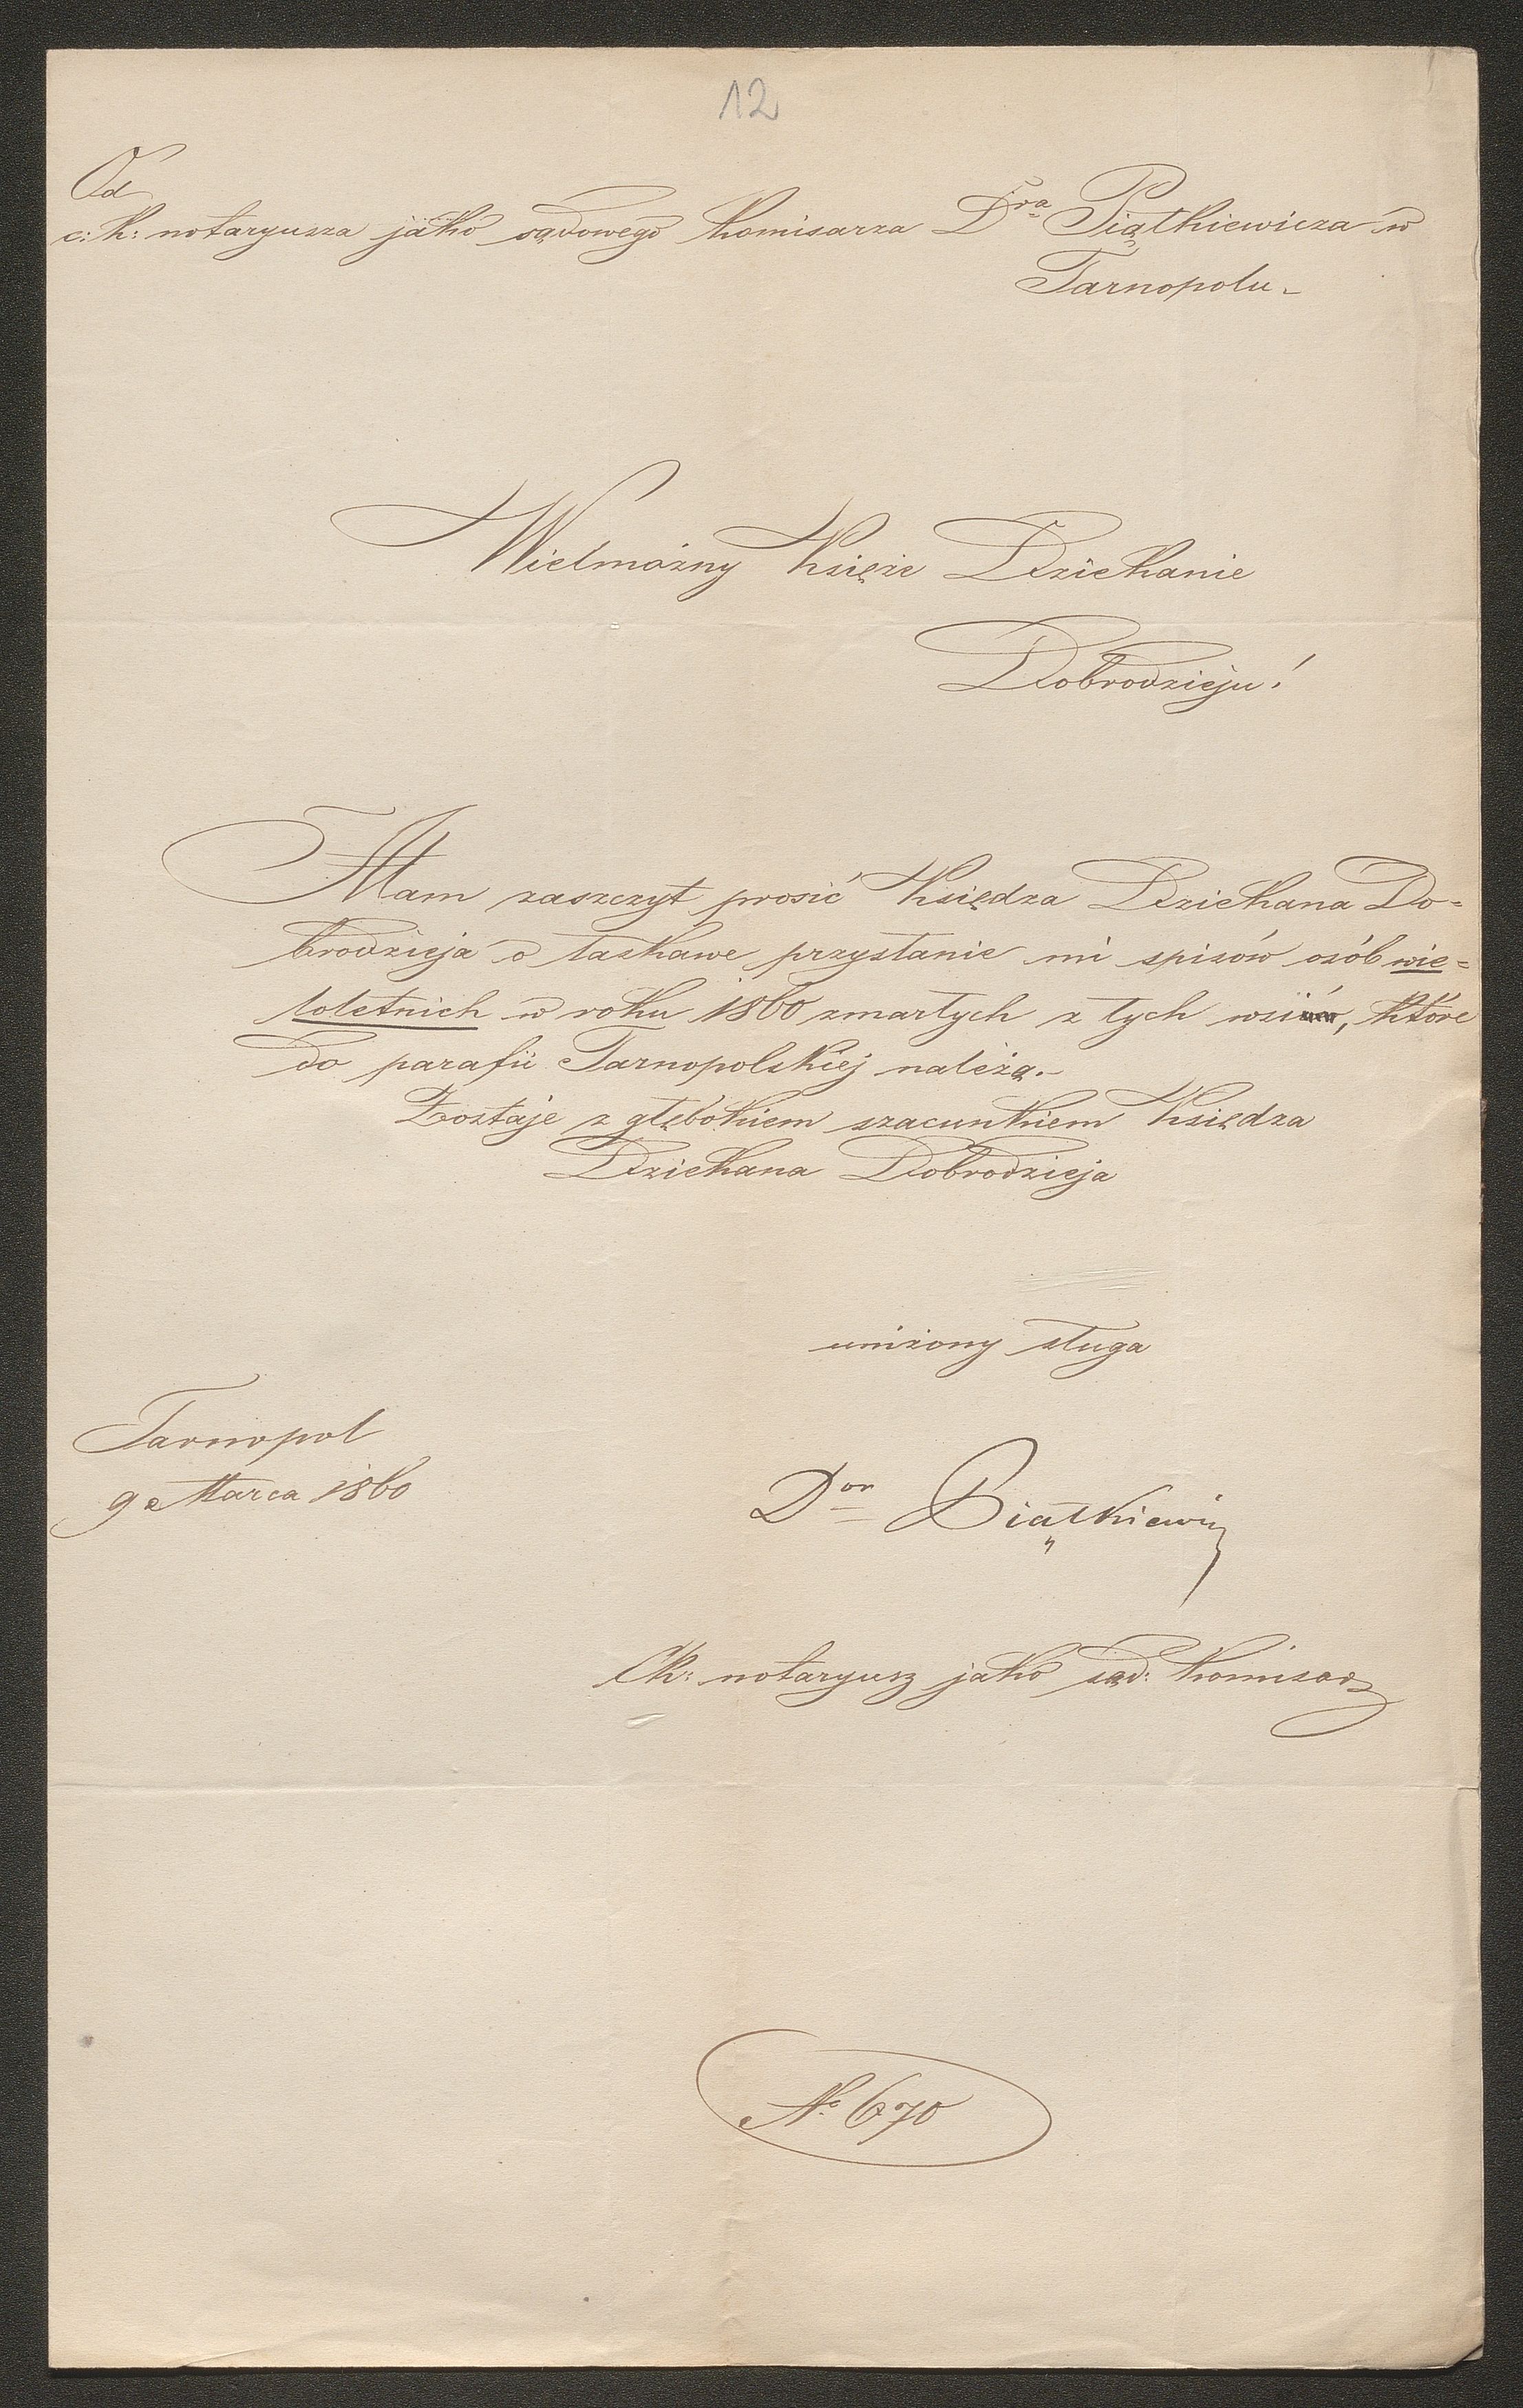 12
Od
c: k: notaryusza jako sądowego komisarza Dra Piątkiewicza w
Tarnopolu.
Wielmożny Księże Dziekanie
Dobrodzieju!
Mam zaszczyt prosić Księdza Dziekana Do=
brodzieja o łaskawe przysłanie mi spisów osób wie=
loletnich w roku 1860 zmarłych z tych wsi, które
do parafii Tarnopolskiej należą.
Zostaje z głębokiem szacunkiem Księdza
Dziekana Dobrodzieja
uniżony sługa
Tarnopol
9 Marca 1860
Dor Piątkiewicz
Ck: notaryusz jako sąd: komisarz
No 670